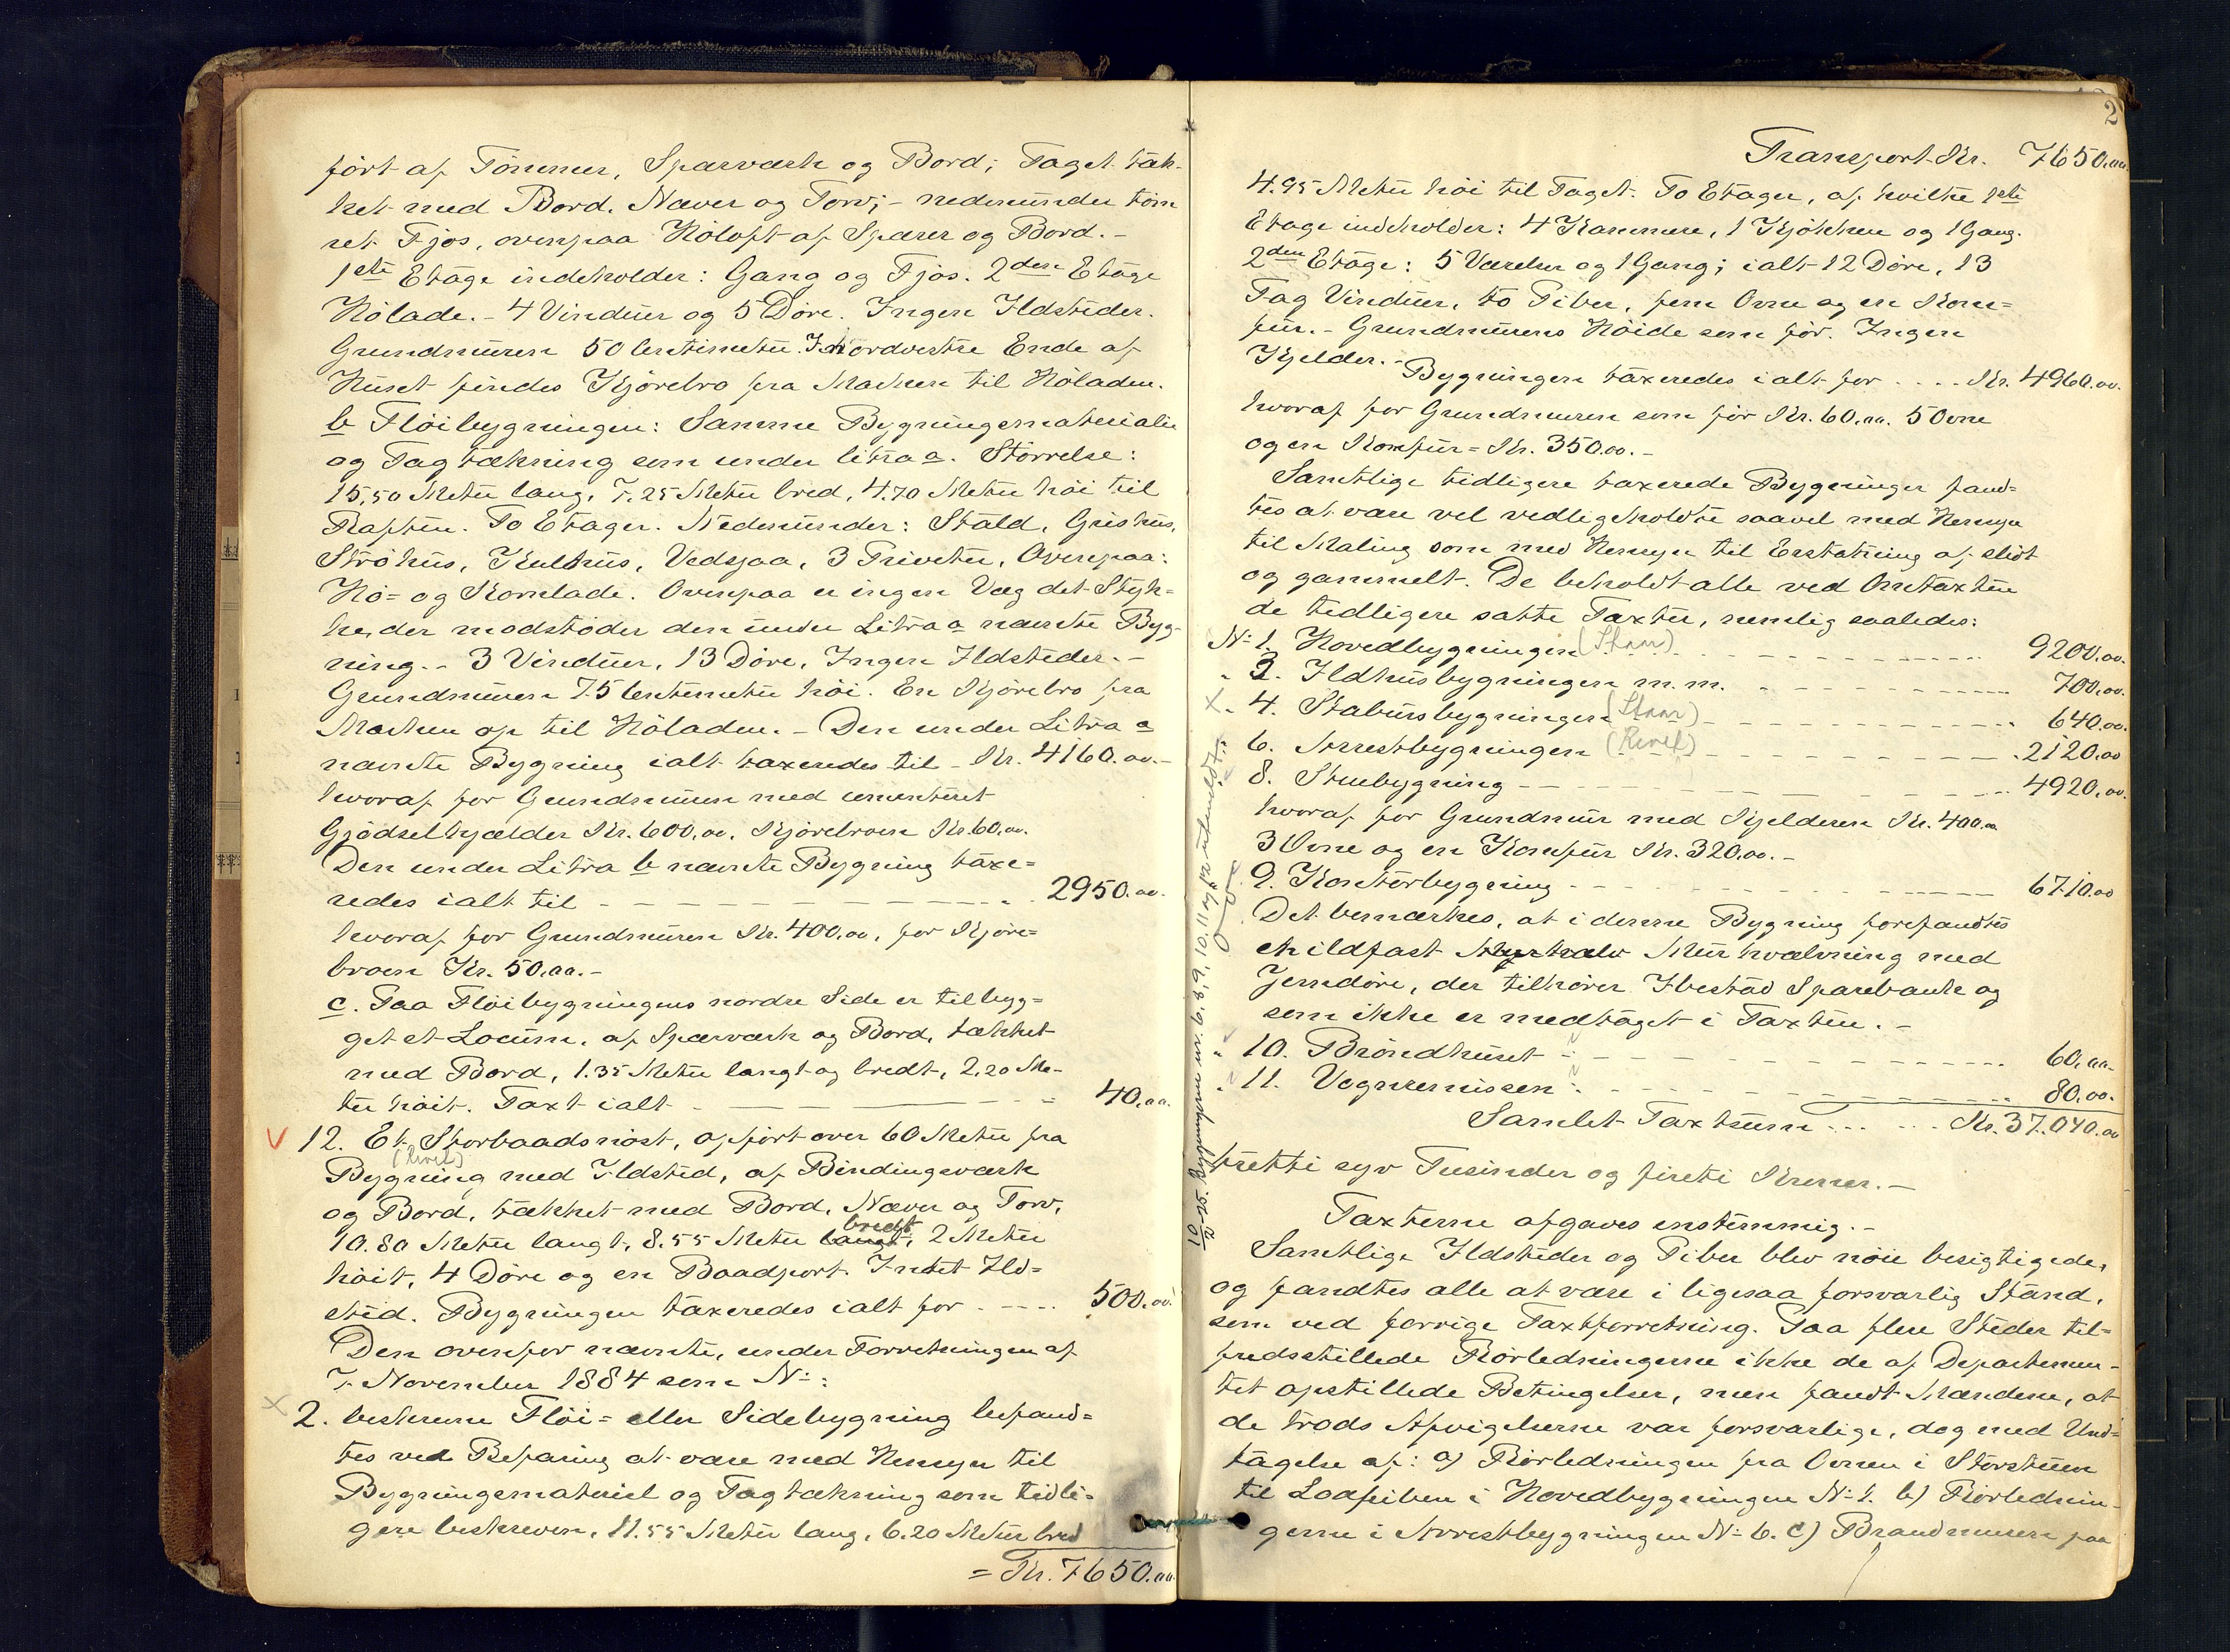 ført af Tømmer, Sparværk og Bord; Taget tæk-
ket med Bord, Næver og Torv; - nedenunder tøm
ret Fjøs, ovenpaa Høloft af Sparer og Bord. -
1ste Etage indeholder: Gang og Fjøs. 2den Etage
Hølade. - 4 Vinduer og 5 Døre. Ingen Ildsteder.
Grundmuren 50 Centimeter. I nordvestre Ende af
Huset findes Kjørebro fra Marken til Høladen.
b Fløibygningen: Samme Bygningsmaterialier
og Tagtækning som under litra a. Størrelse:
15,50 Meter lang, 7.25 Meter bred, 4.70 Meter høi til
Raften. To Etager. Nedenunder: Stald, Grishus,
Strøhus, Kulhus, Vedsjaa, 3 Priveter, Ovenpaa:
Hø- og Kornlade. Ovenpaa er ingen Væg det Styk-
ke, der modstøder den under Litra a nævnte Byg-
ning. - 3 Vinduer, 13 Døre, Ingen Ildsteder. -
Grundmuren 75 Centimeter høi. En Kjørebro fra
Marken op til Høladen. - Den under Litra a
nævnte Bygning ialt taxeredes til - Kr. 4160.00. -
hvoraf for Grundmuren med cementeret
Gjødselkjælder Kr. 600,00, Kjørebroen Kr. 60,00.
Den under Litra b nævnte Bygning taxe-
redes ialt til - - - 2950.00.
hvoraf for Grundmuren Kr. 400,00, for Kjøre-
broen Kr. 50,00. -
c. Paa Fløibygningens nordre Side er tilbyg-
get et Locum, af Sparværk og Bord, tækket
med Bord, 1.35 Meter langt og bredt, 2,20 Me-
ter høit. Taxt ialt - - - 40,00.
V 12. Et Storbaadsnøst, opført over 60 Meter fra
(Revet)
Bygning med Ildsted, af Bindingsværk
og Bord, tækket med Bord, Næver og Torv,
bredt
10.80 Meter langt, 8.55 Meter langt, 2 Meter
høit, 4 Døre og en Baadport. Intet Ild-
sted. Bygningen taxeredes ialt for - - - 500.00.
Den ovenfor nævnte, under Forretningen af
7. November 1884 som No:
x 2. beskrevne Fløi- eller Sidebygning befand-
tes ved Befaring at være med Hensyn til
Bygningsmateriel og Tagtækning som tidli-
gere beskreven, 11.55 Meter lang, 6.20 Meter bred
= Kr. 7650.00
2
Transport Kr. 7650,00
4.95 Meter høi til Taget. To Etager, af hvilke 1ste
Etage indeholder: 4 Kammere, 1 Kjøkken og 1 Gang.
2den Etage: 5 Værelser og 1 Gang; ialt 12 Døre, 13
Fag Vinduer, to Piber, fem Ovne og en Kom-
fur. - Grundmurens Høide som før. Ingen
Kjelder. -
Bygningen taxeredes ialt for . . . . Kr. 4960.00.
hvoraf for Grundmuren som før Kr. 60,00. 5 Ovne
og en Komfur = Kr. 350.00. -
Samtlige tidligere taxerede Bygninger fand-
tes at være vel vedligeholdte saavel med Hensyn
til Maling som med Hensyn til Erstatning af slidt
og gammelt. De beholdt alle ved Omtaxten
de tidligere satte Taxter, nemlig saaledes:
No 1. Hovedbygningen (Staar) - - - 9200,00.
" 3. Ildhusbygningen m.m. - - - 700,00.
x " 4. Stabursbygningen (Staar) - - - 640,00.
" 6. Arrestbygningen (Revet) - - - 2120,00
" 8. Stuebygning - - - 4920,00.
hvoraf for Grundmur med Kjelderen Kr. 400.00
3 Ovne og en Komfur Kr. 320,00. -
" 9. Kontorbygning - - - 6710.00
Det bemærkes, at i denne Bygning forefandtes
et ildfast Murhvælvning med
Jerndøre, der tilhører Ibestad Sparebank og
som ikke er medtaget i Taxten. -
" 10. Brøndhuset - - - 60,00.
" 11. Vognremissen - - - 80,00.
Samlet Taxtsum - - - Kr. 37.040.00
tretti syv Tusinder og fireti Kroner. -
Taxterne afgaves enstemmig. -
Samtlige Ildsteder og Piber blev nøie besigtigede,
og fandtes alle at være i ligesaa forsvarlig Stand,
som ved forrige Taxtforretning. Paa flere Steder til-
fredsstillede Rørledningerne ikke de af Departemen-
tet opstillede Betingelser, men fandt Mændene, at
de trods Afvigelserne var forsvarlige, dog med Und-
tagelse af: a) Rørledningen fra Ovnen i Storstuen
til Loftpiben i Hovedbygningen No 1. b) Rørlednin-
gerne i Arrestbygningen No 6. c) Brandmuren paa
Bygningerne nr. 6, 8, 9, 10, 11 og 12 utmeldt